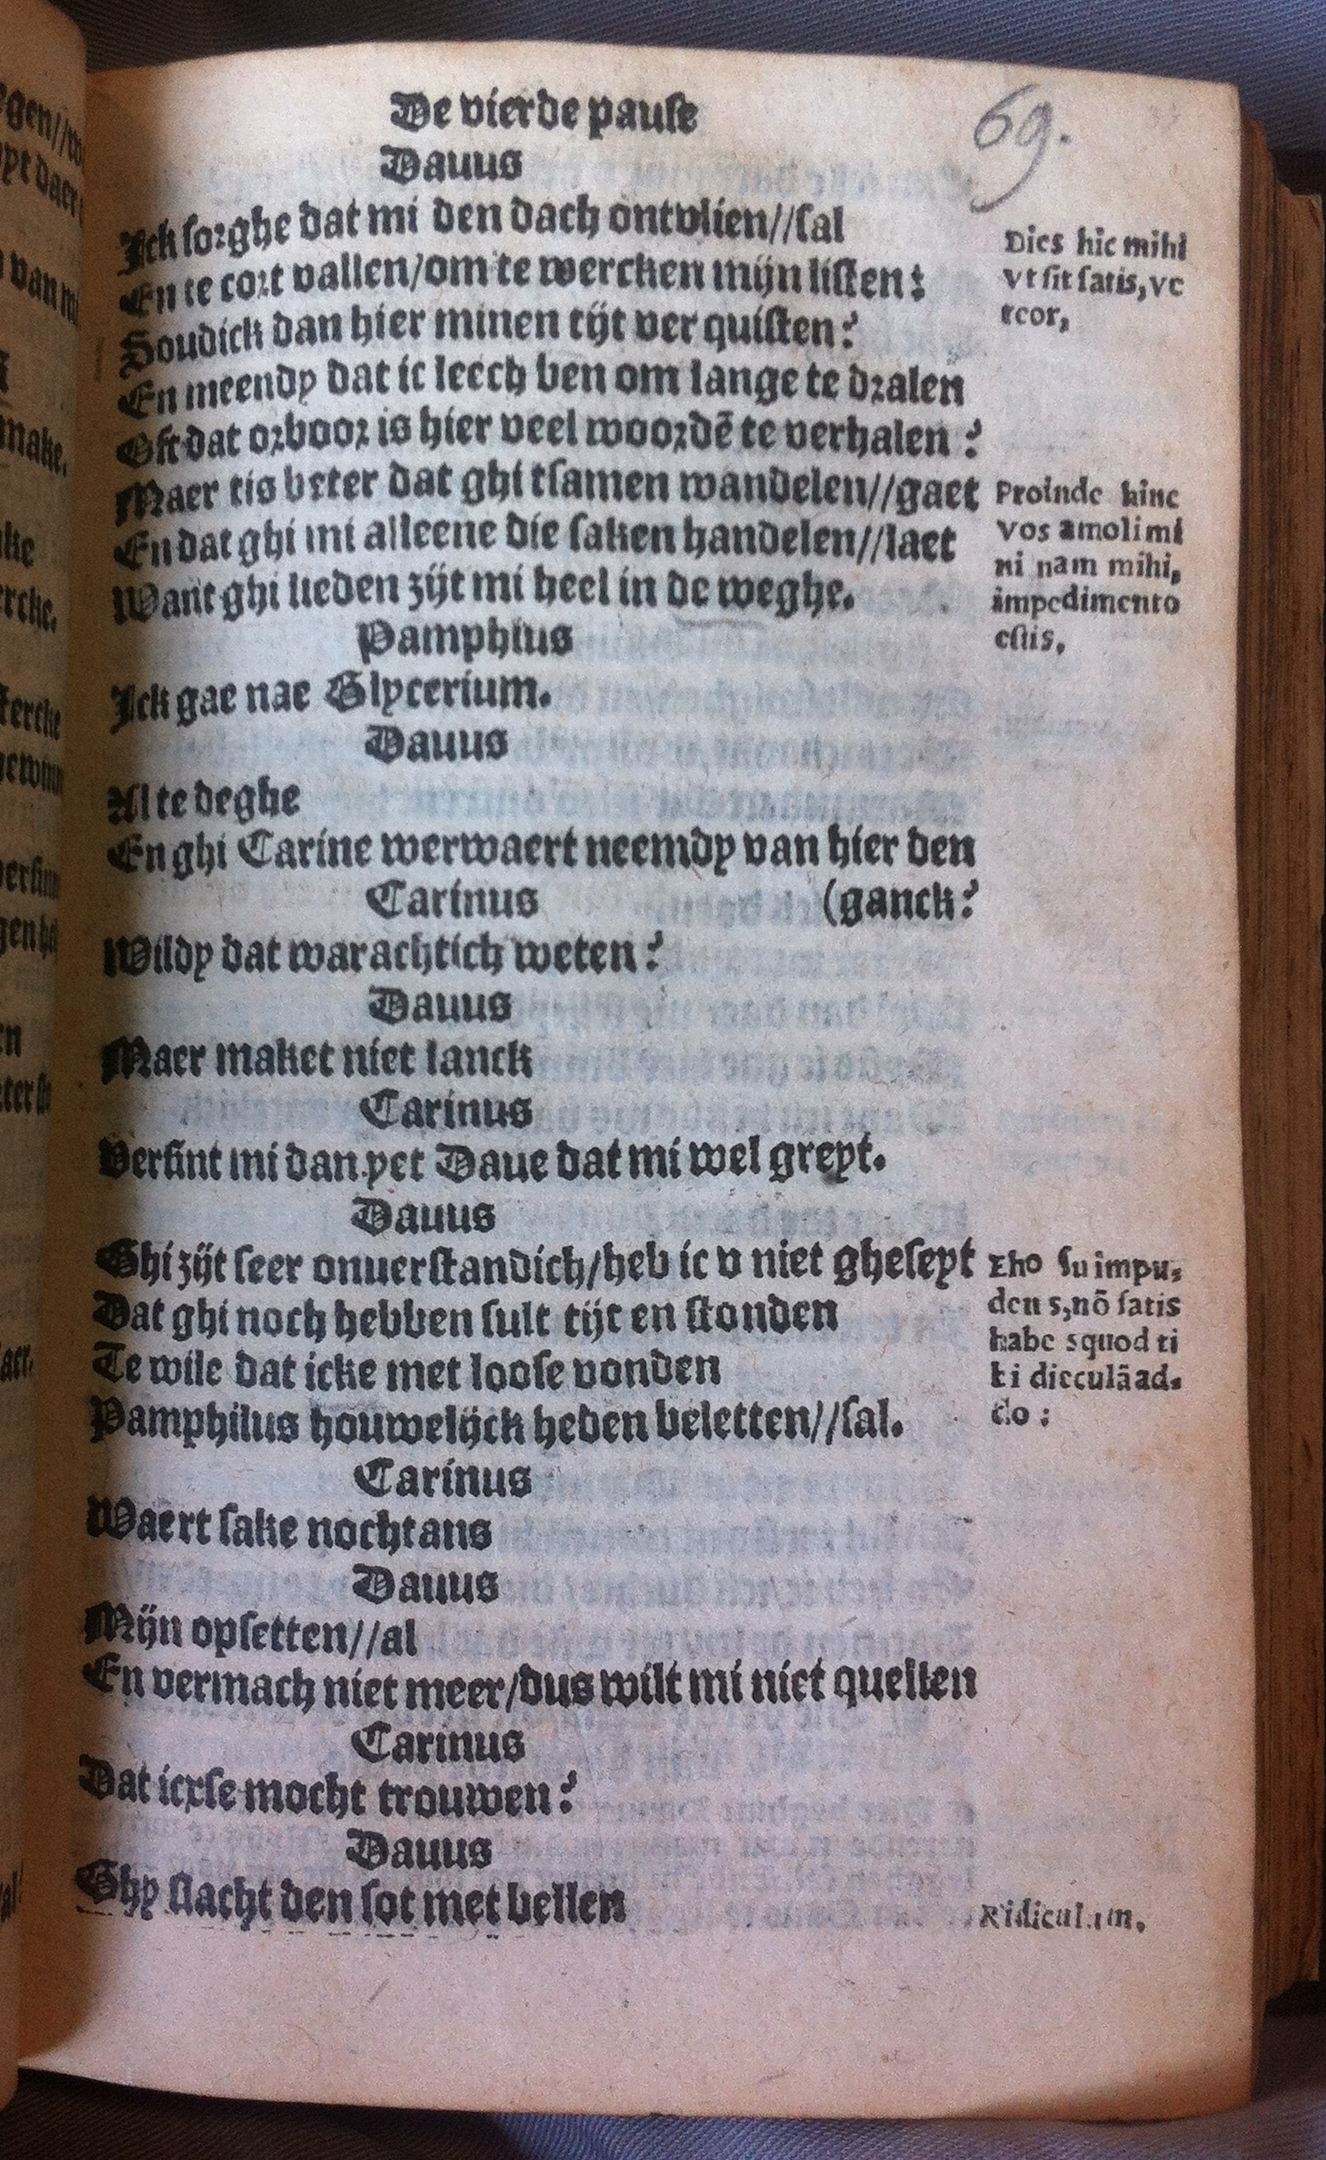 De vierde pause
69.
Dauus
Ick sorghe dat mi den dach ontvlien//sal
En te cort vallen/om te wercken mijn listen:
Soudick dan hier minen tijt ver quisten?
En meendy dat ic leech ben om lange te dralen
Oft dat orboor is hier veel woordē te verhalen?
Maer tis beter dat ghi tsamen wandelen//gaet
En dat ghi mi alleene die saken handelen//laet
Want ghi lieden zijt mi heel in de weghe.
Pamphius
Ick gae nae Glycerium.
Dauus
Al te deghe
En ghi Carine werwaert neemdy van hier den
Carinus (ganck?
Wildy dat warachtich weten?
Dauus
Maer maket niet lanck
Carinus
Versint mi dan yet Daue dat mi wel greyt.
Dauus
Ghi zijt seer onuerstandich/heb ic v niet gheseyt
Dat ghi noch hebben sult tijt en stonden
Te wile dat icke met loose vonden
Pamphilus houwelijck heden beletten//sal.
Carinus
Waert sake nochtans
Dauus
Mijn opsetten//al
En vermach niet meer/dus wilt mi niet quellen
Carinus
Dat icxse mocht trouwen?
Dauus
Ghy slacht den sot met bellen
Dies hic mihi
vt sit satis, ve
reor,
Proinde hinc
vos amolimi
ni nam mihi,
impedimento
estis,
Eho su impu,
den s,nō satis
habe squod ti
bi dieculā ad,
do :
Ridiculum,